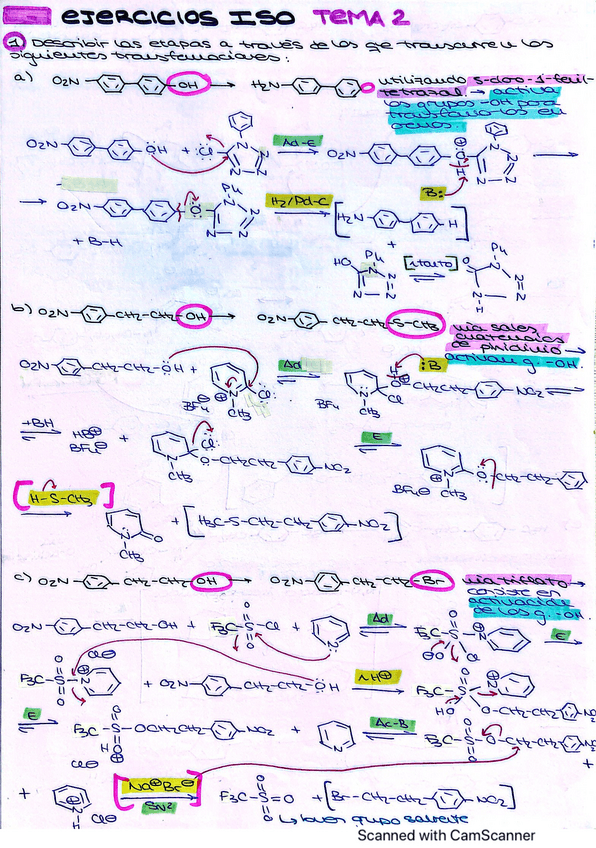 EJERCICIOS ISO TEMA 2
1 Describir las etapas a través de las que transcurren las
siguientes transformaciones:
a) O2N OH → H2N utilizando 5-cloro-1-fenil-
tetrazol → activa
los grupos -OH para
transformarlos en
O2N OH + Cl N N N N Ad-E O2N O H N N N N
B:
Ph
→ O2N O N N N N H2/Pd-C [H2N H]
+ B-H +
HO Ph N N N N [rápido] O Ph N N N N H
b) O2N CH2-CH2-OH → O2N CH2-CH2-S-CH3 vía sales
cuaternarias
de piridinio →
activan g. -OH.
O2N CH2-CH2-OH + N CH3 Cl BF4⊖ Ad N CH3 Cl H O CH2CH2 NO2 :B
BF4
+BH HB⊕ BF4⊖ + N CH3 Cl O-CH2CH2 NO2 E N CH3 O-CH2CH2 NO2
BF4⊖
[H-S-CH3]
→ N CH3 O + [H3C-S-CH2-CH2 NO2]
c) O2N CH2-CH2 OH → O2N CH2-CH2-Br vía triflato →
consiste en
activación
de los g. -OH.
O2N CH2-CH2-OH + F3C-S-Cl O O + N Ad F3C-S-N O O Cl E
Cl⊖
F3C-S-N O O + O2N CH2-CH2-OH 1H⊕ F3C-S-N HO O-CH2-CH2 NO2
E F3C-S-OCH2CH2 NO2 O O H + N Ac-B F3C-S-O-CH2-CH2 NO2 O O
Cl⊖ +
+ N H Cl⊖ [Na⊕Br⊖ SN2] F3C-S=O O O + [Br-CH2-CH2 NO2]
↳ buen grupo saliente
Scanned with CamScanner